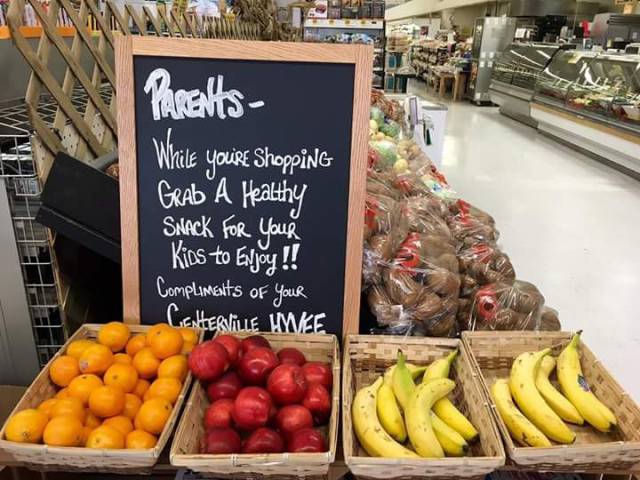 Parents-
While you're Shopping
Grab A Healthy
Snack for your
Kids to Enjoy!!
Compliments of your
Centerville HYVEE